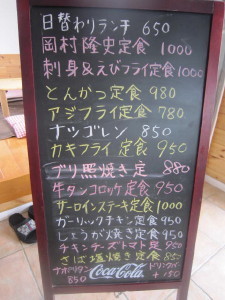 日替わりランチ 650
岡村隆史定食 1000
刺身&えびフライ定食 1000
とんかつ定食 980
アジフライ定食 780
ナシゴレン 850
カキフライ定食 950
ブリ照焼き定 880
牛タンコロッケ定食 950
サーロインステーキ定食 1000
ガーリックチキン定食 950
しょうが焼き定食 950
チキンチーズトマト定 950
さば塩焼き定食 850
ナポリタン 850
Coca-Cola
ドリンクバー +150